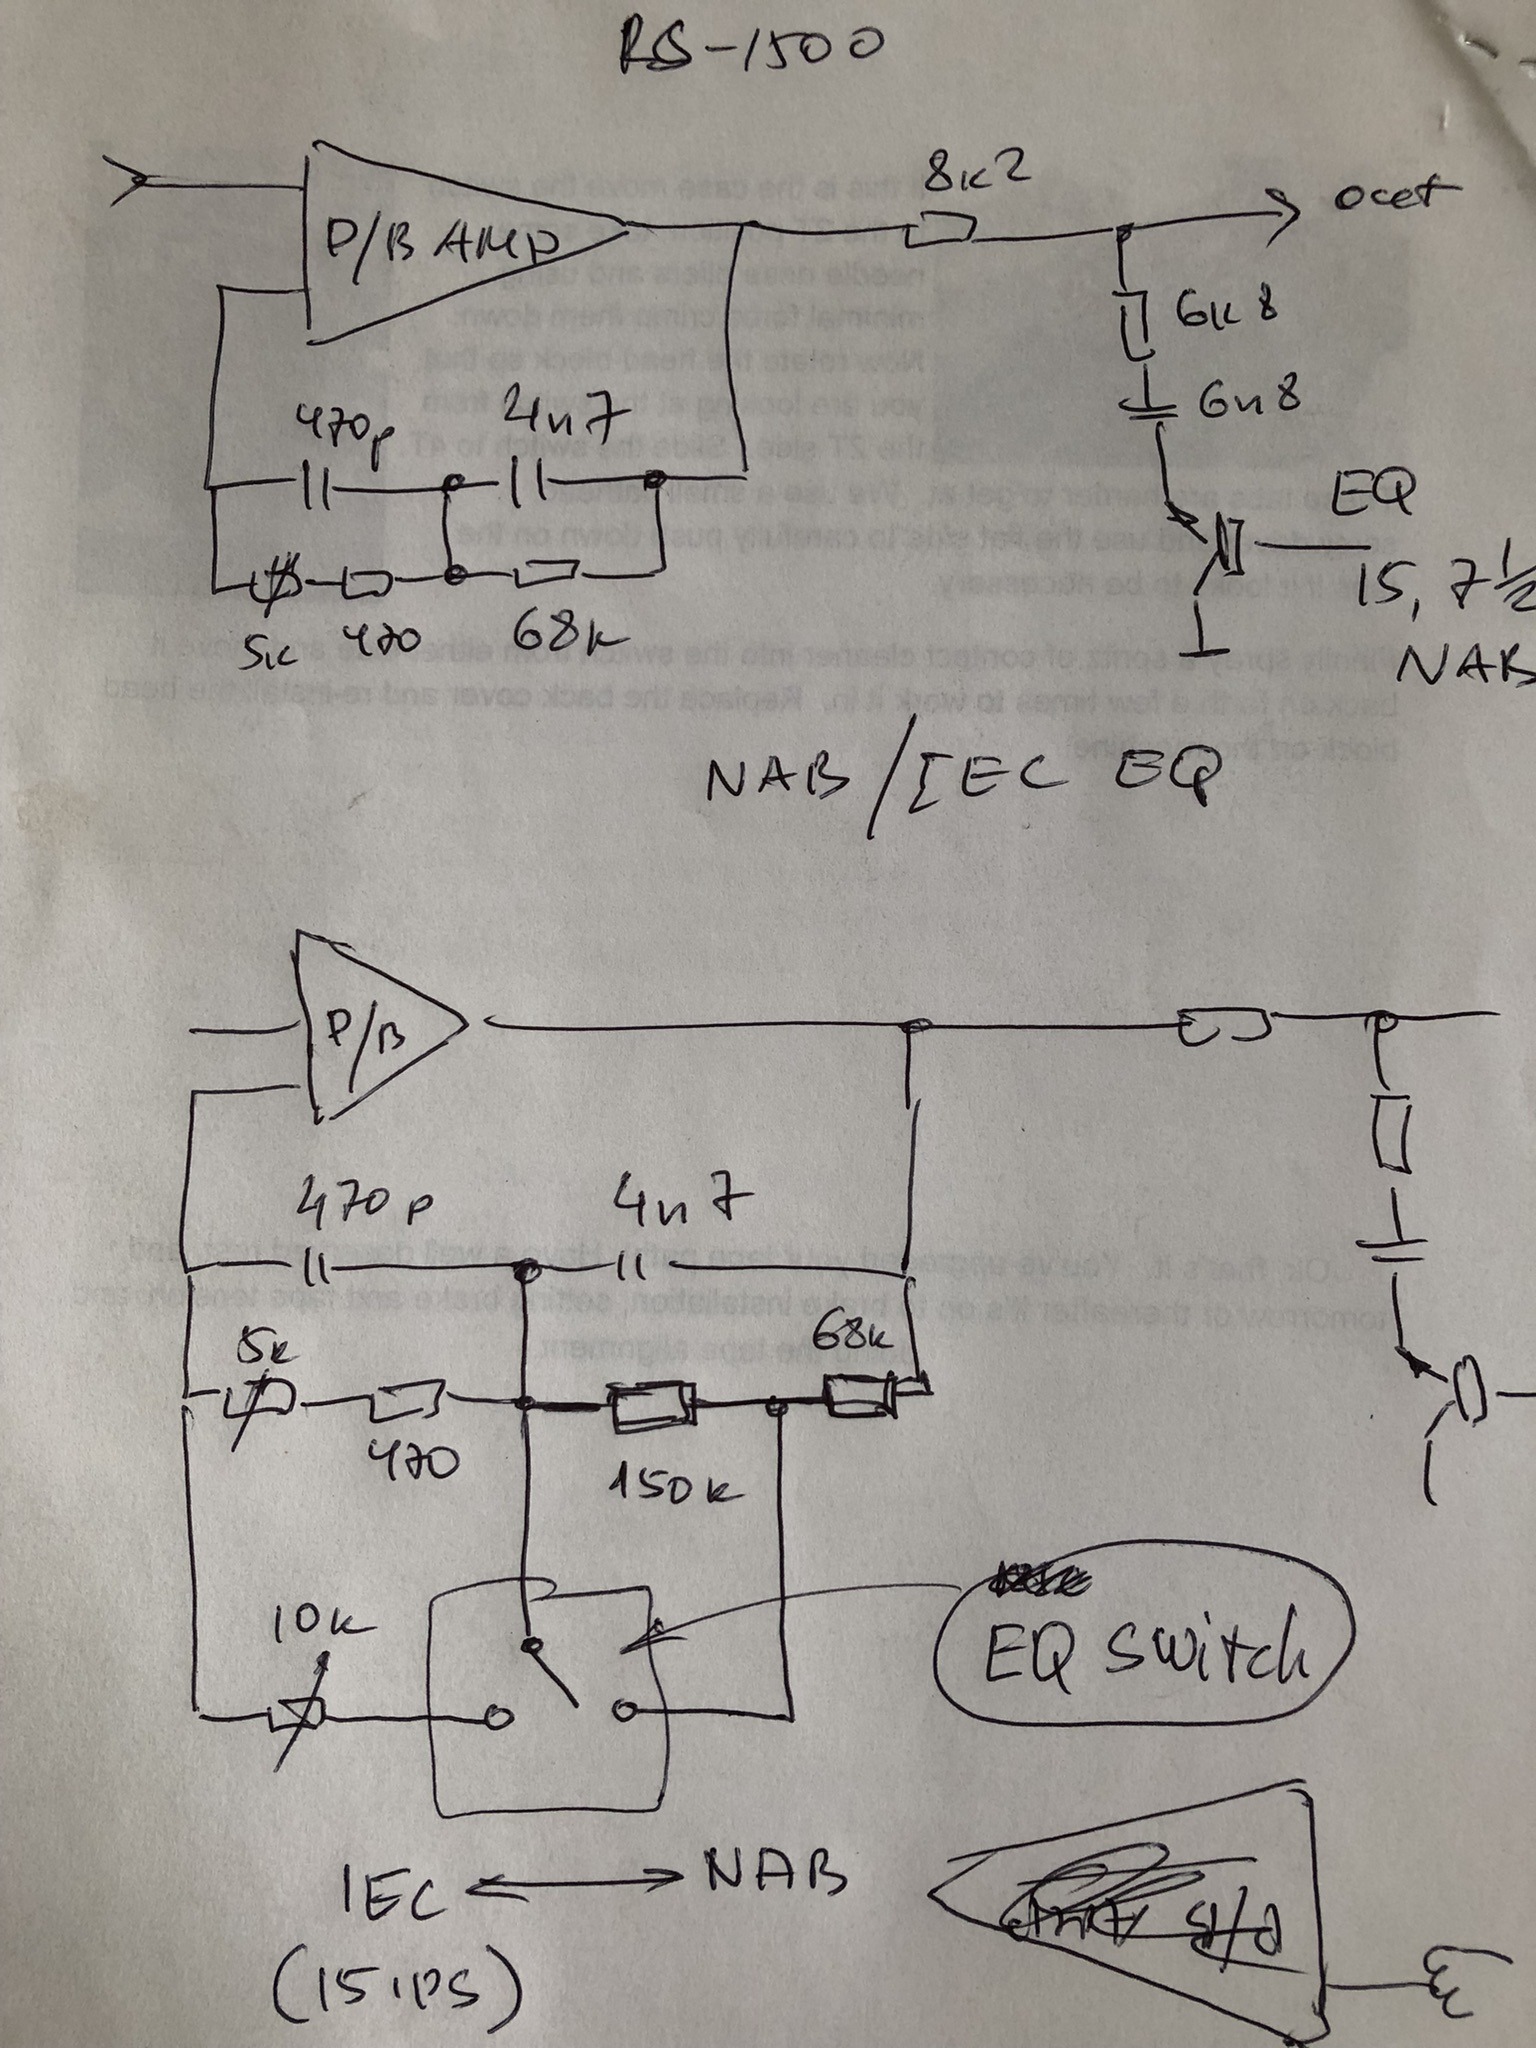 RS-1500
8k2
P/B AMP
6k8
470p
4n7
6n8
EQ
15, 7 1/2
NAB
5k
470
68k
NAB/IEC EQ
P/B
470p
4n7
5k
68k
470
150k
10k
EQ switch
IEC ↔ NAB
(15 IPS)